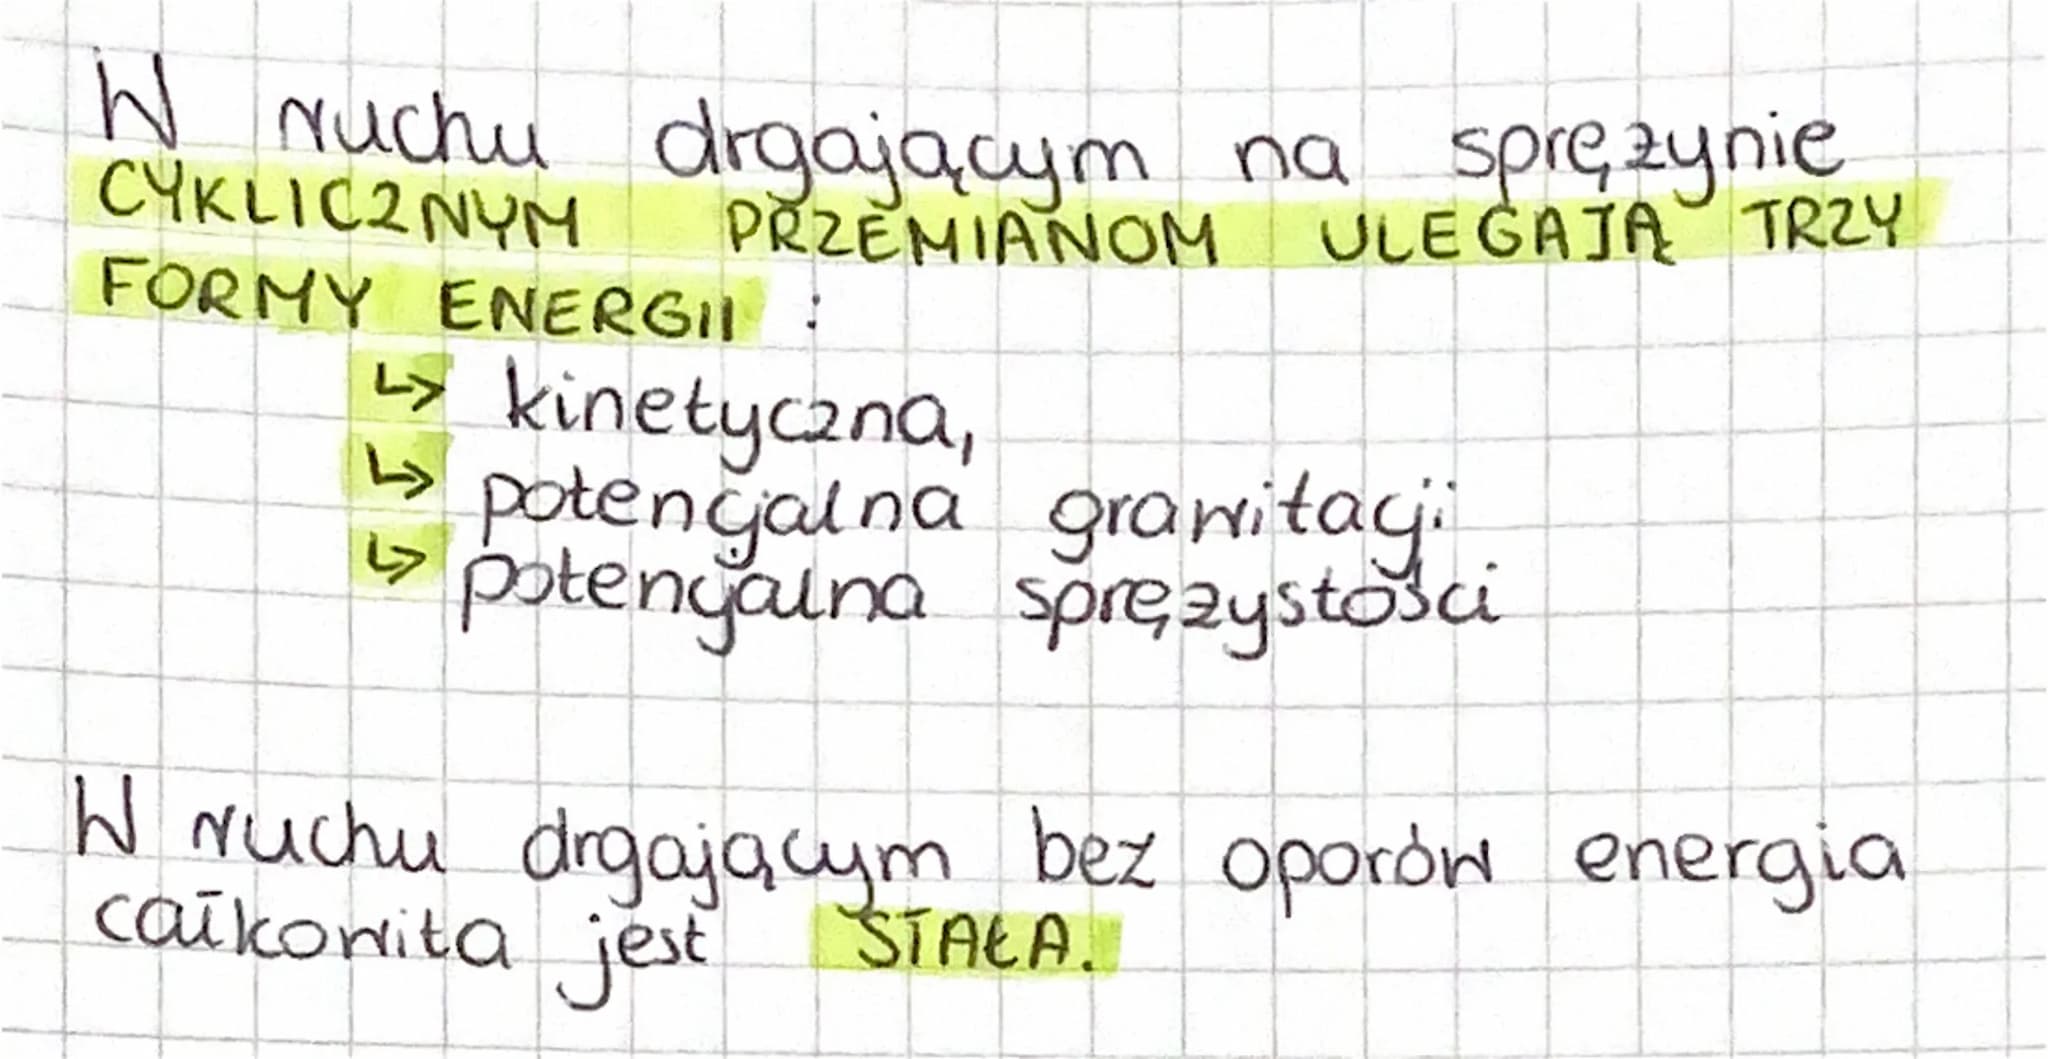 W ruchu drgającym na sprężynie
CYKLICZNYM PRZEMIANOM ULEGAJĄ TRZY
FORMY ENERGII :
↳ kinetyczna,
↳ potencjalna grawitacji
↳ potencjalna sprężystości
W ruchu drgającym bez oporów energia
całkowita jest STAŁA.